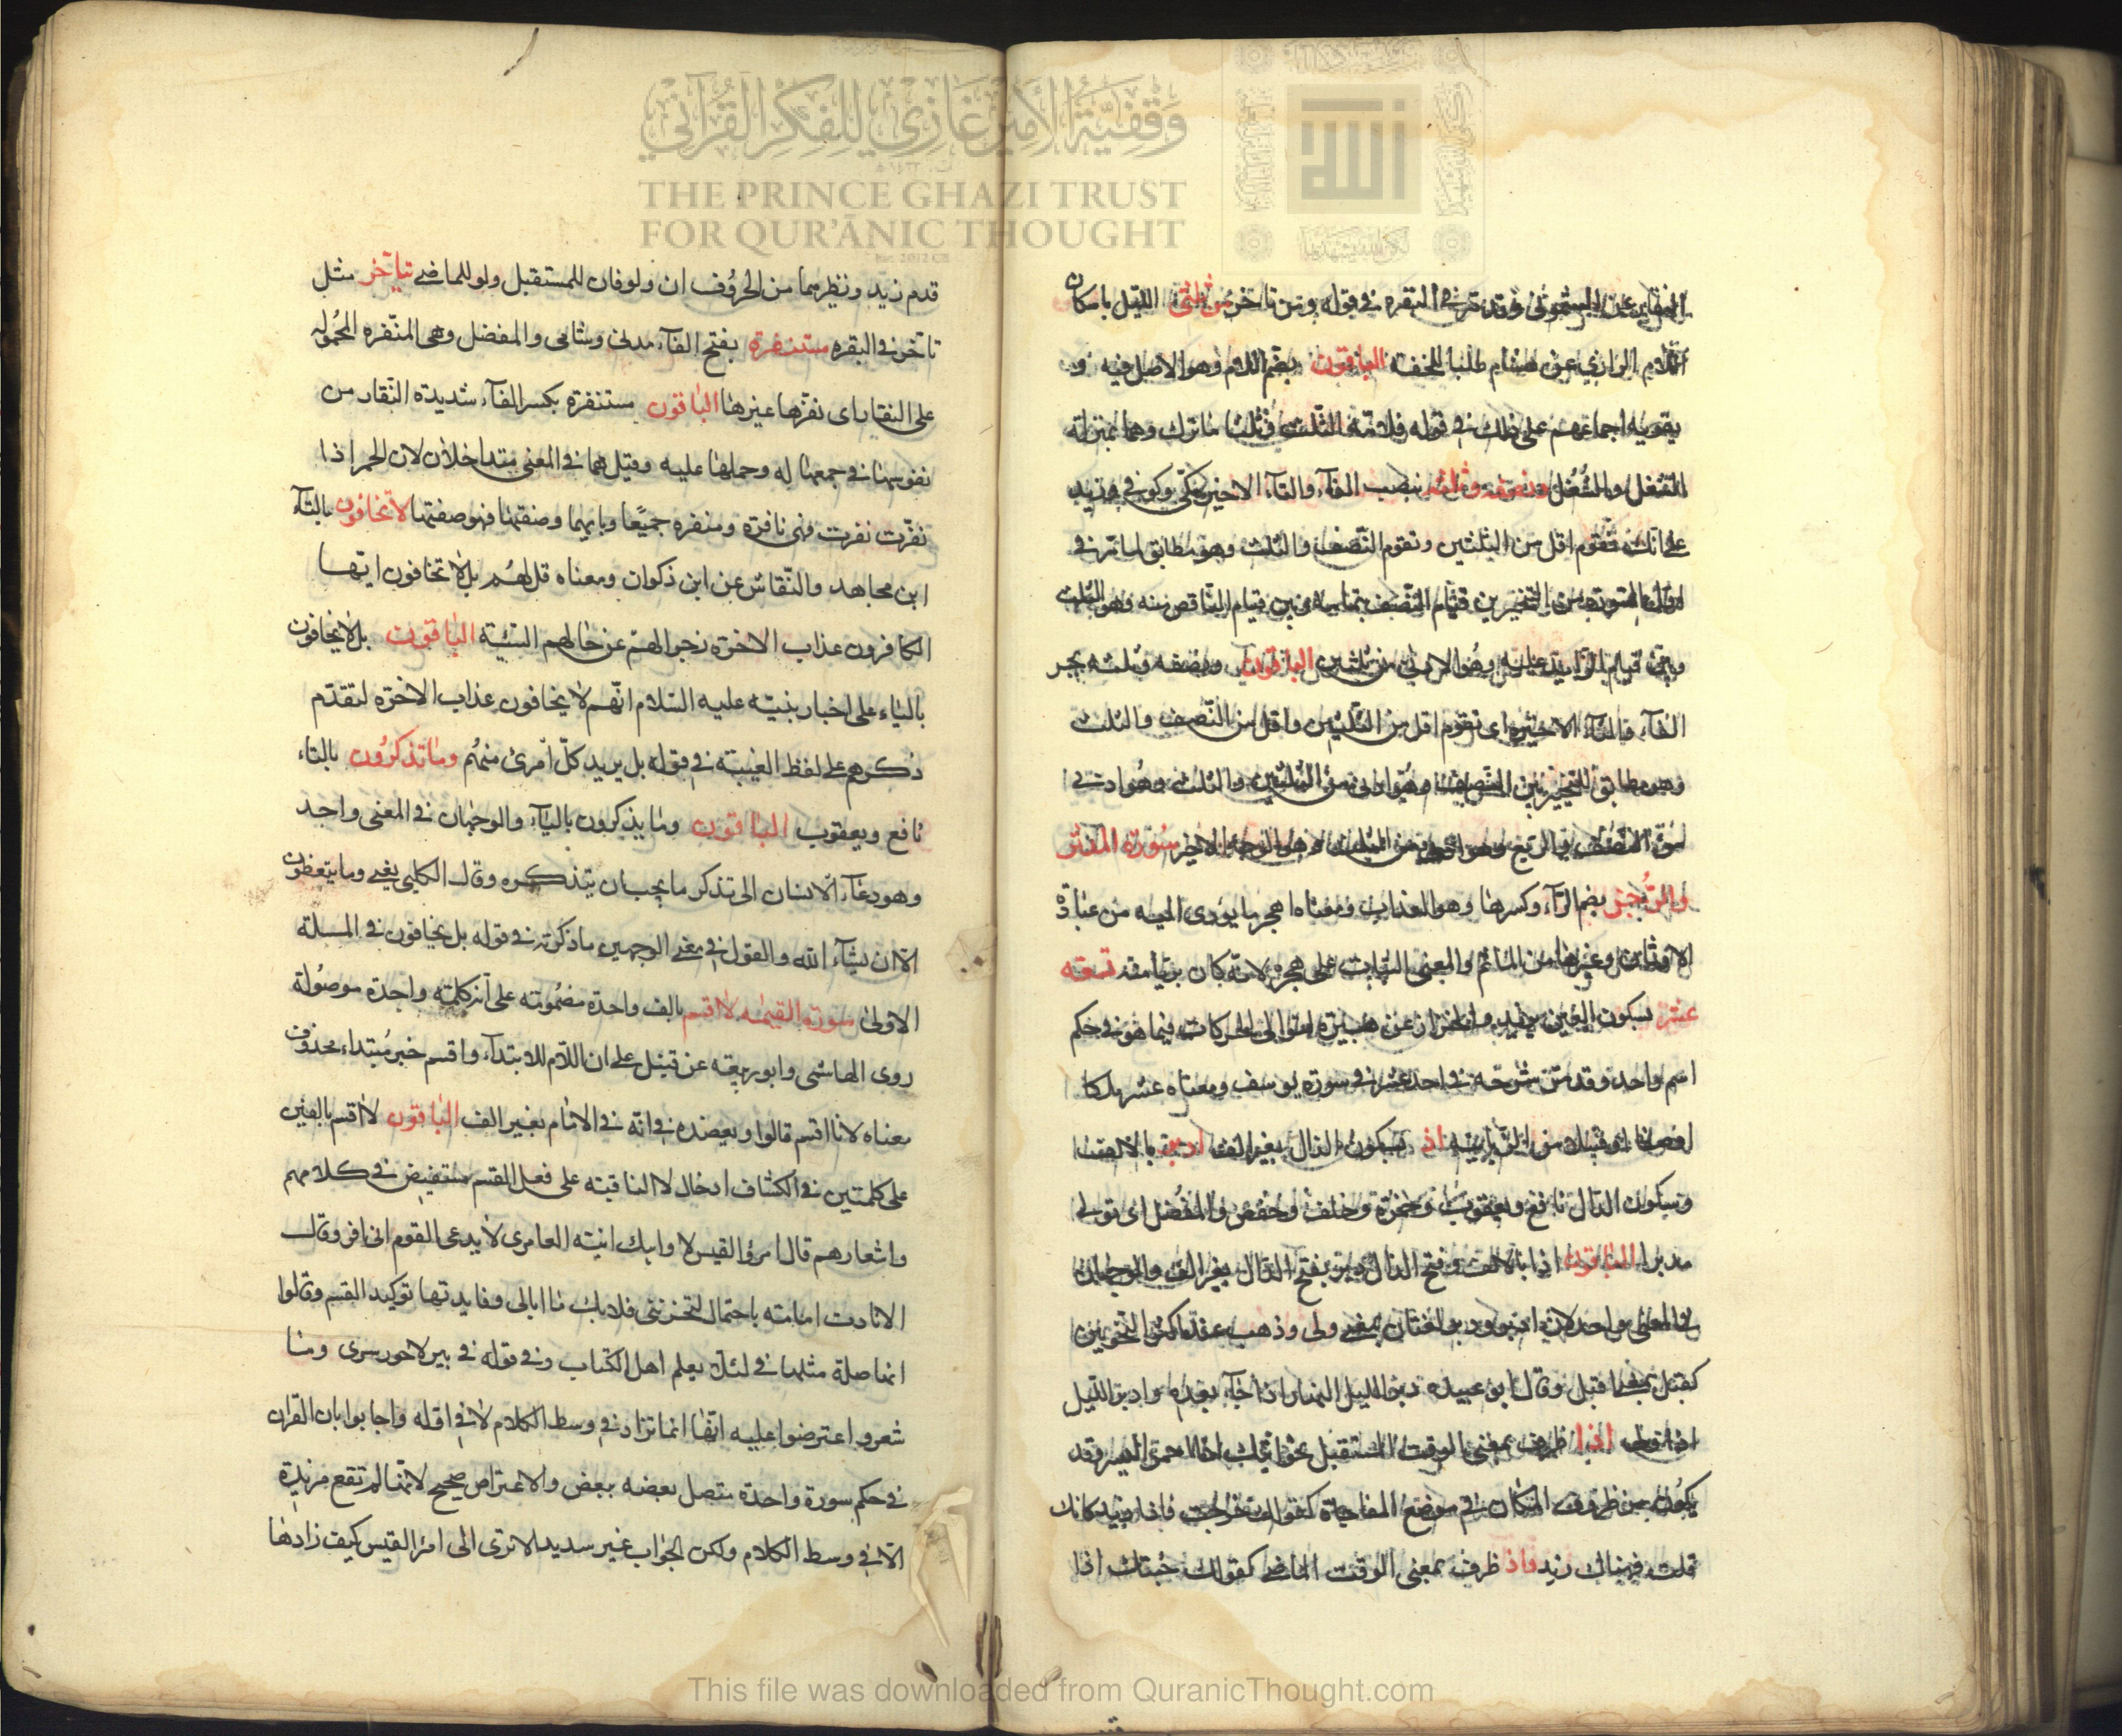 وقفية الأمير غازي للفكر القرآني
THE PRINCE GHAZI TRUST
FOR QUR'ĀNIC THOUGHT
في البقره في قوله ومن تاخر ثلثى الليل باسكان
اللام الرازي عن هشام طلبا للخفة الباقون بضم اللام وهو الاصل فيه و
يقويه اجماعهم على ذلك في قوله فلامه الثلث وثلثا ما ترك وهما بمنزلة
الشغل والشغل ونصفه وثلثه بنصب الفآء والثآء الاخير مكي وكوفي وزيد
على انك تقوم اقل من الثلثين وتقوم النصف والثلث وهو مطابق لما مر في
اول السورة من التخيير بين قيام النصف بتمامه وبين قيام الناقص منه وهو الثلث
وبين قيام الزايد عليه وهو الادنى من ثلثين الباقون ونصفه وثلثه بجر
الفآء والثآء الاخيرة اى تقوم اقل من الثلثين واقل من النصف والثلث
وهو مطابق للتخيير بين النصف وهو ادنى من الثلثين والثلث وهو ادنى
سورة المدثر
والرجز بضم الرآء وكسرها وهو العذاب ومعناه اهجر ما يودى اليه من عبادة
الاوثان وغيرها من المآثم والمعنى الثبات على هجره لانه كان بريا منه تسعه
عشر بسكون العين يزيد والخزاز عن هبيرة لتوالى الحركات فيما هو في حكم
اسم واحد وقد مر شرحه في احد عشر في سورة يوسف ومعناه عشر ملكا
اذ بسكون الذال بغير الف ادبر بالالف
وسكون الدال نافع ويعقوب وحمزة وخلف وحفص والمفضل اى تولى
مدبرا الباقون اذا بالالف وفتح الذال دبر بفتح الدال بغير الف والوجهان
في المعنى واحد لان ادبر ودبر لغتان بمعنى ولى وذهب عند اكثر النحويين
كقبل بمعنى اقبل وقال ابو عبيده دبر الليل النهار اذا جآء بعده وادبر الليل
اذا تولى اذا ظرف بمعنى الوقت المستقبل نحو اتيك اذا احمر البسر وقد
يكون من ظروف المكان في موضع المفاجاة كقولك خرجت فاذا زيد كانك
قلت فهناك زيد واذ ظرف بمعنى الوقت الماضى كقولك جئتك اذا
قدم زيد ونظيرهما من الحروف ان ولو فان للمستقبل ولو للماضى تياخر مثل
تاخر في البقره مستنفرة بفتح الفآء مدنى وشامى والمفضل وهى المنفره المحموله
على النفار اى نفرها غيرها الباقون مستنفرة بكسر الفآء شديدة النفار من
نفوسها في جمعها له وحملها عليه وقيل هما في المعنى متداخلان لان الحمر اذا
نفرت نفرت فهى نافرة ومنفره جميعا وبايهما وصفتها فهو صفتها لا تخافون بالتآء
ابن مجاهد والنقاش عن ابن ذكوان ومعناه قل لهم بل لا تخافون ايها
الكافرون عذاب الاخرة زجرا لهم عن حالهم السيئة الباقون بل لا يخافون
بالياء على اخبار نبيه عليه السلام انهم لا يخافون عذاب الاخرة لتقدم
ذكرهم على لفظ الغيبة في قوله بل يريد كل امرئ منهم وما تذكرون بالتاء
نافع ويعقوب الباقون وما يذكرون باليآء والوجهان في المعنى واحد
وهو دعآء الانسان الى تذكر ما يجب ان يتذكره وقال الكلبي يعنى وما يتعظون
الا ان يشآء الله والقول في معنى الوجهين ما ذكرته في قوله بل يخافون في المسلة
الاولى سورة القيمه لا اقسم بالف واحدة مضمومة على انه كلمة واحدة موصولة
روى الهاشمى وابو ربيعة عن قنبل على ان اللام للابتدآء واقسم خبر مبتداء محذوف
معناه لانا اقسم قالوا ويعضده في انه في الامام بغير الف الباقون لا اقسم بالفين
على كلمتين في الكشاف ادخال لا النافية على فعل القسم مستفيض في كلامهم
واشعارهم قال امرؤ القيس لا وابيك ابنة العامرى لا يدعى القوم انى افر وقال
الا نادت امامة باحتمال لتحزننى فلا بك ما ابالى وفايدتها توكيد القسم وقالوا
انها صلة مثلها في لئلا يعلم اهل الكتاب وفي قوله في بير لا حور سرى وما
شعر واعترضوا عليه انها انما تزاد في وسط الكلام لا في اوله واجابوا بان القران
في حكم سورة واحدة متصل بعضه ببعض والاعتراض صحيح لانها لم تقع مزيدة
الا في وسط الكلام ولكن الجواب غير سديد الا ترى الى امرئ القيس كيف زادها
This file was downloaded from QuranicThought.com